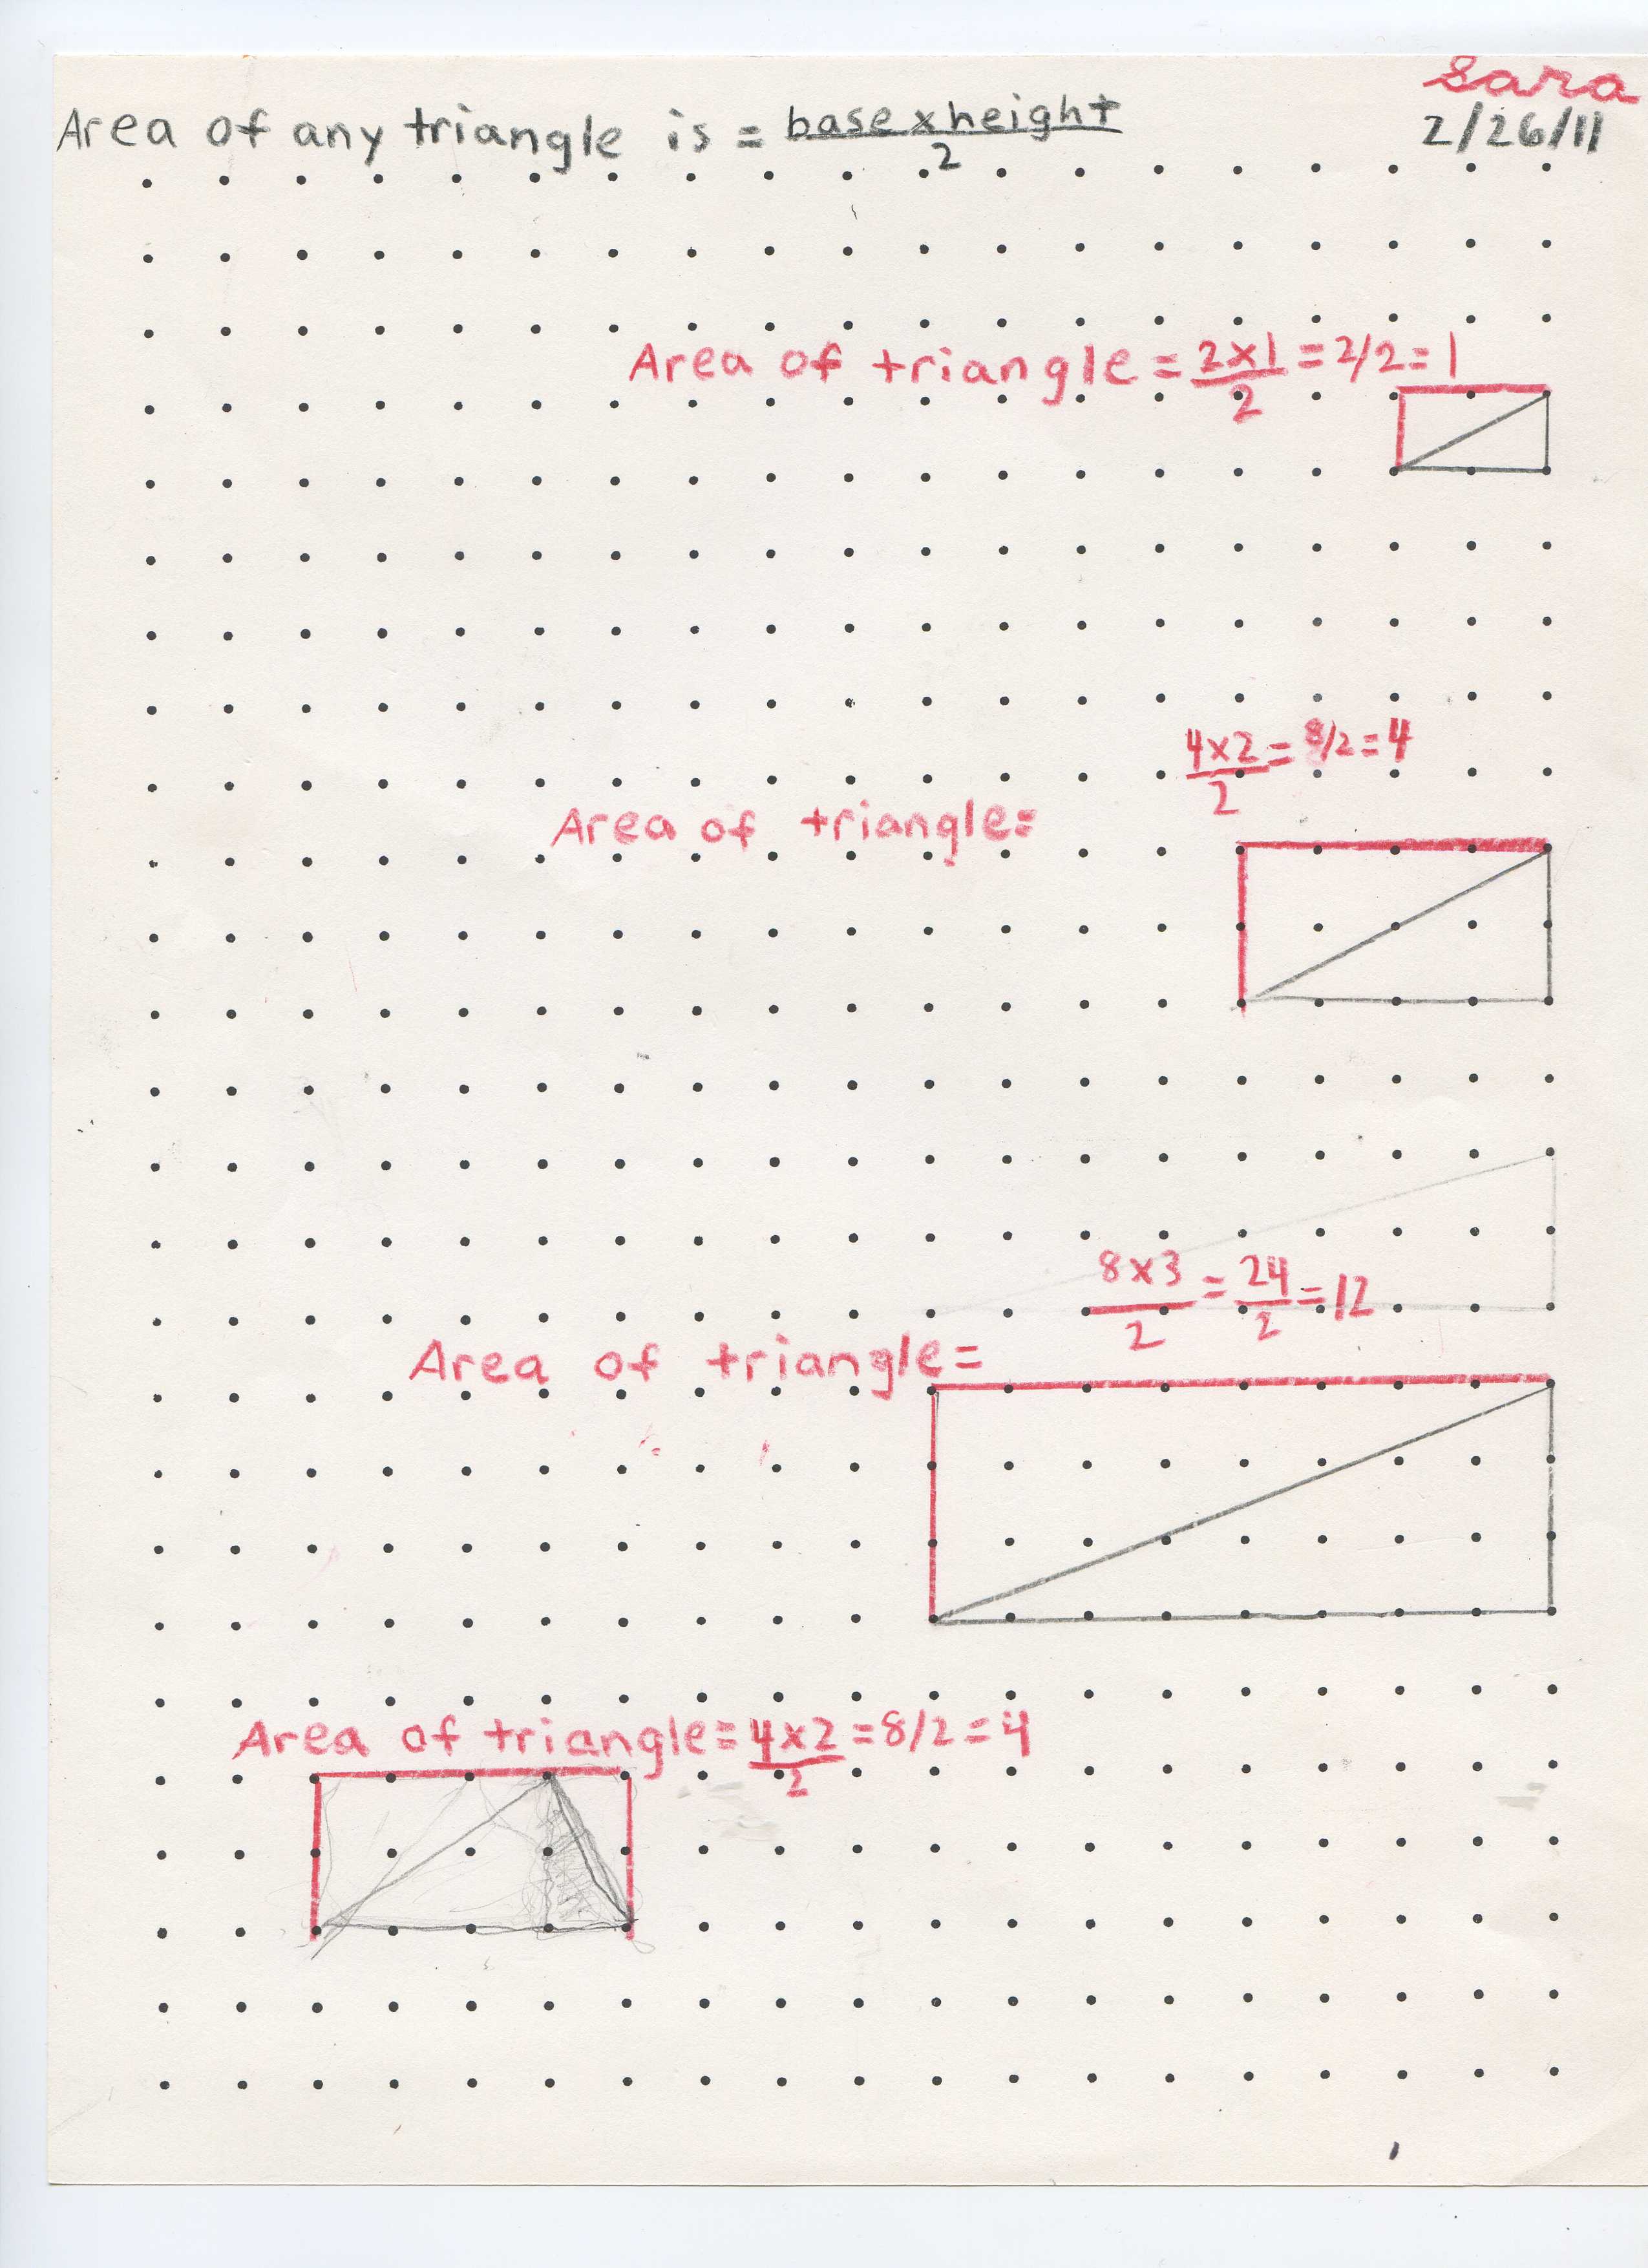 Sara
Area of any triangle is = base x height
2
2/26/11
Area of triangle = 2x1 = 2/2 = 1
2
4x2 = 8/2 = 4
2
Area of triangle=
8x3 = 24 = 12
2 2
Area of triangle=
Area of triangle= 4x2 = 8/2 = 4
2